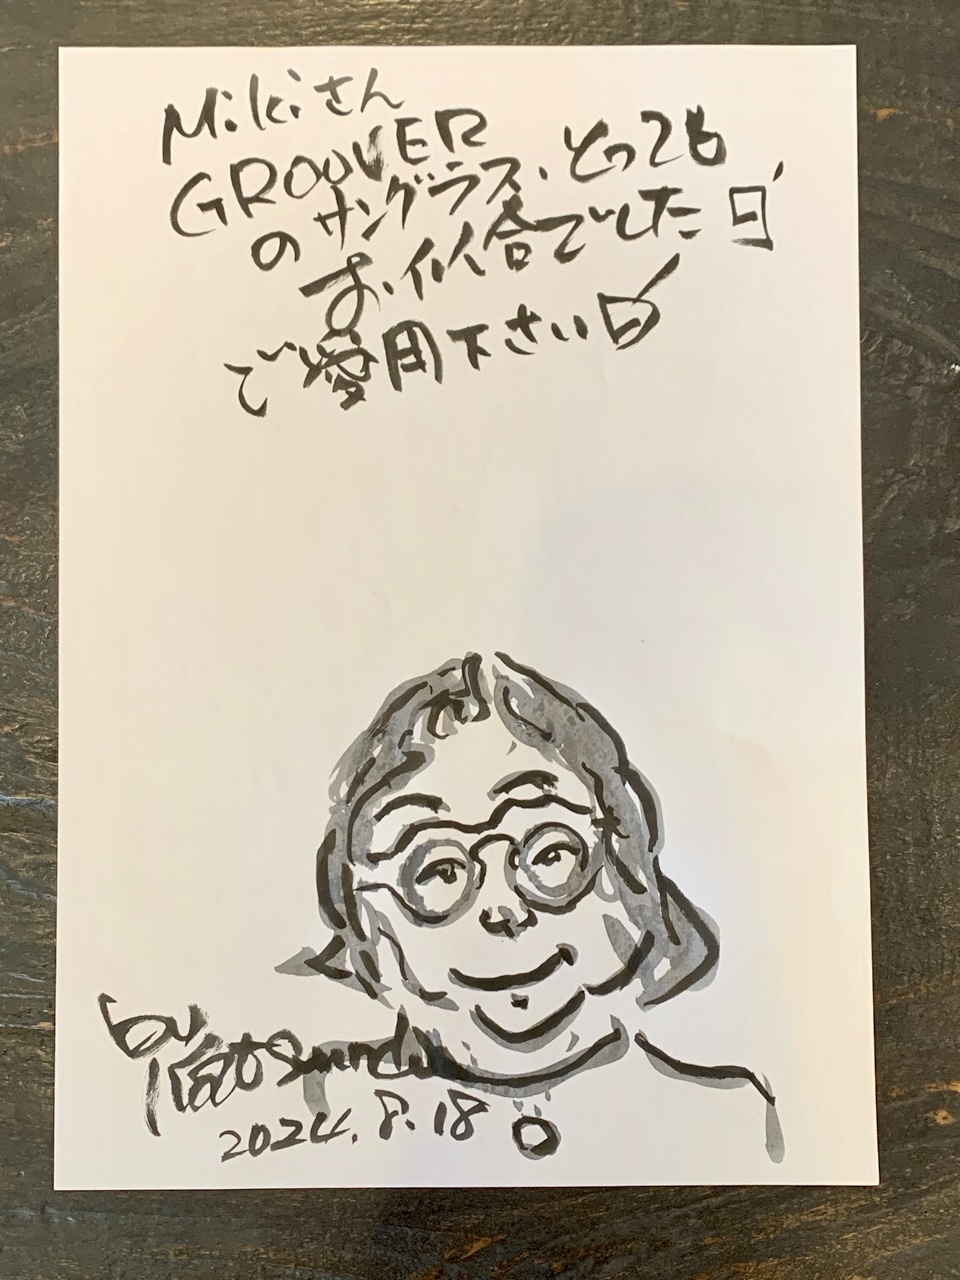 Mikiさん
GROOVER
のサングラス、とっても
お似合でした
ご愛用下さい
by
2024.8.18